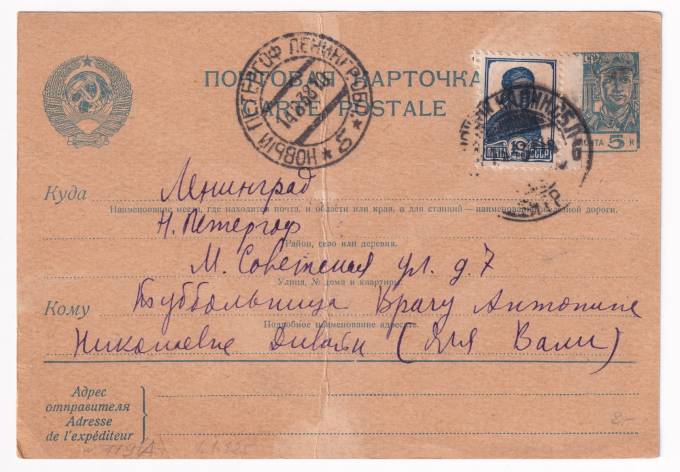 ПОЧТОВАЯ КАРТОЧКА
CARTE POSTALE
НОВЫЙ ПЕТЕРГОФ ЛЕНИНГР. ОБЛ.
ПОЧТА СССР
ПОЧТА 5 К
Куда Ленинград
Наименование места, где находится почта, и области или края, а для станций — наименование железной дороги.
Н. Петергоф
Район, село или деревня.
М. Советская ул. д. 7
Улица, № дома и квартиры.
Кому Врачу Антонине
Подробное наименование адресата.
Николаевне (для Вали)
Адрес
отправителя
Adresse
de l'expéditeur